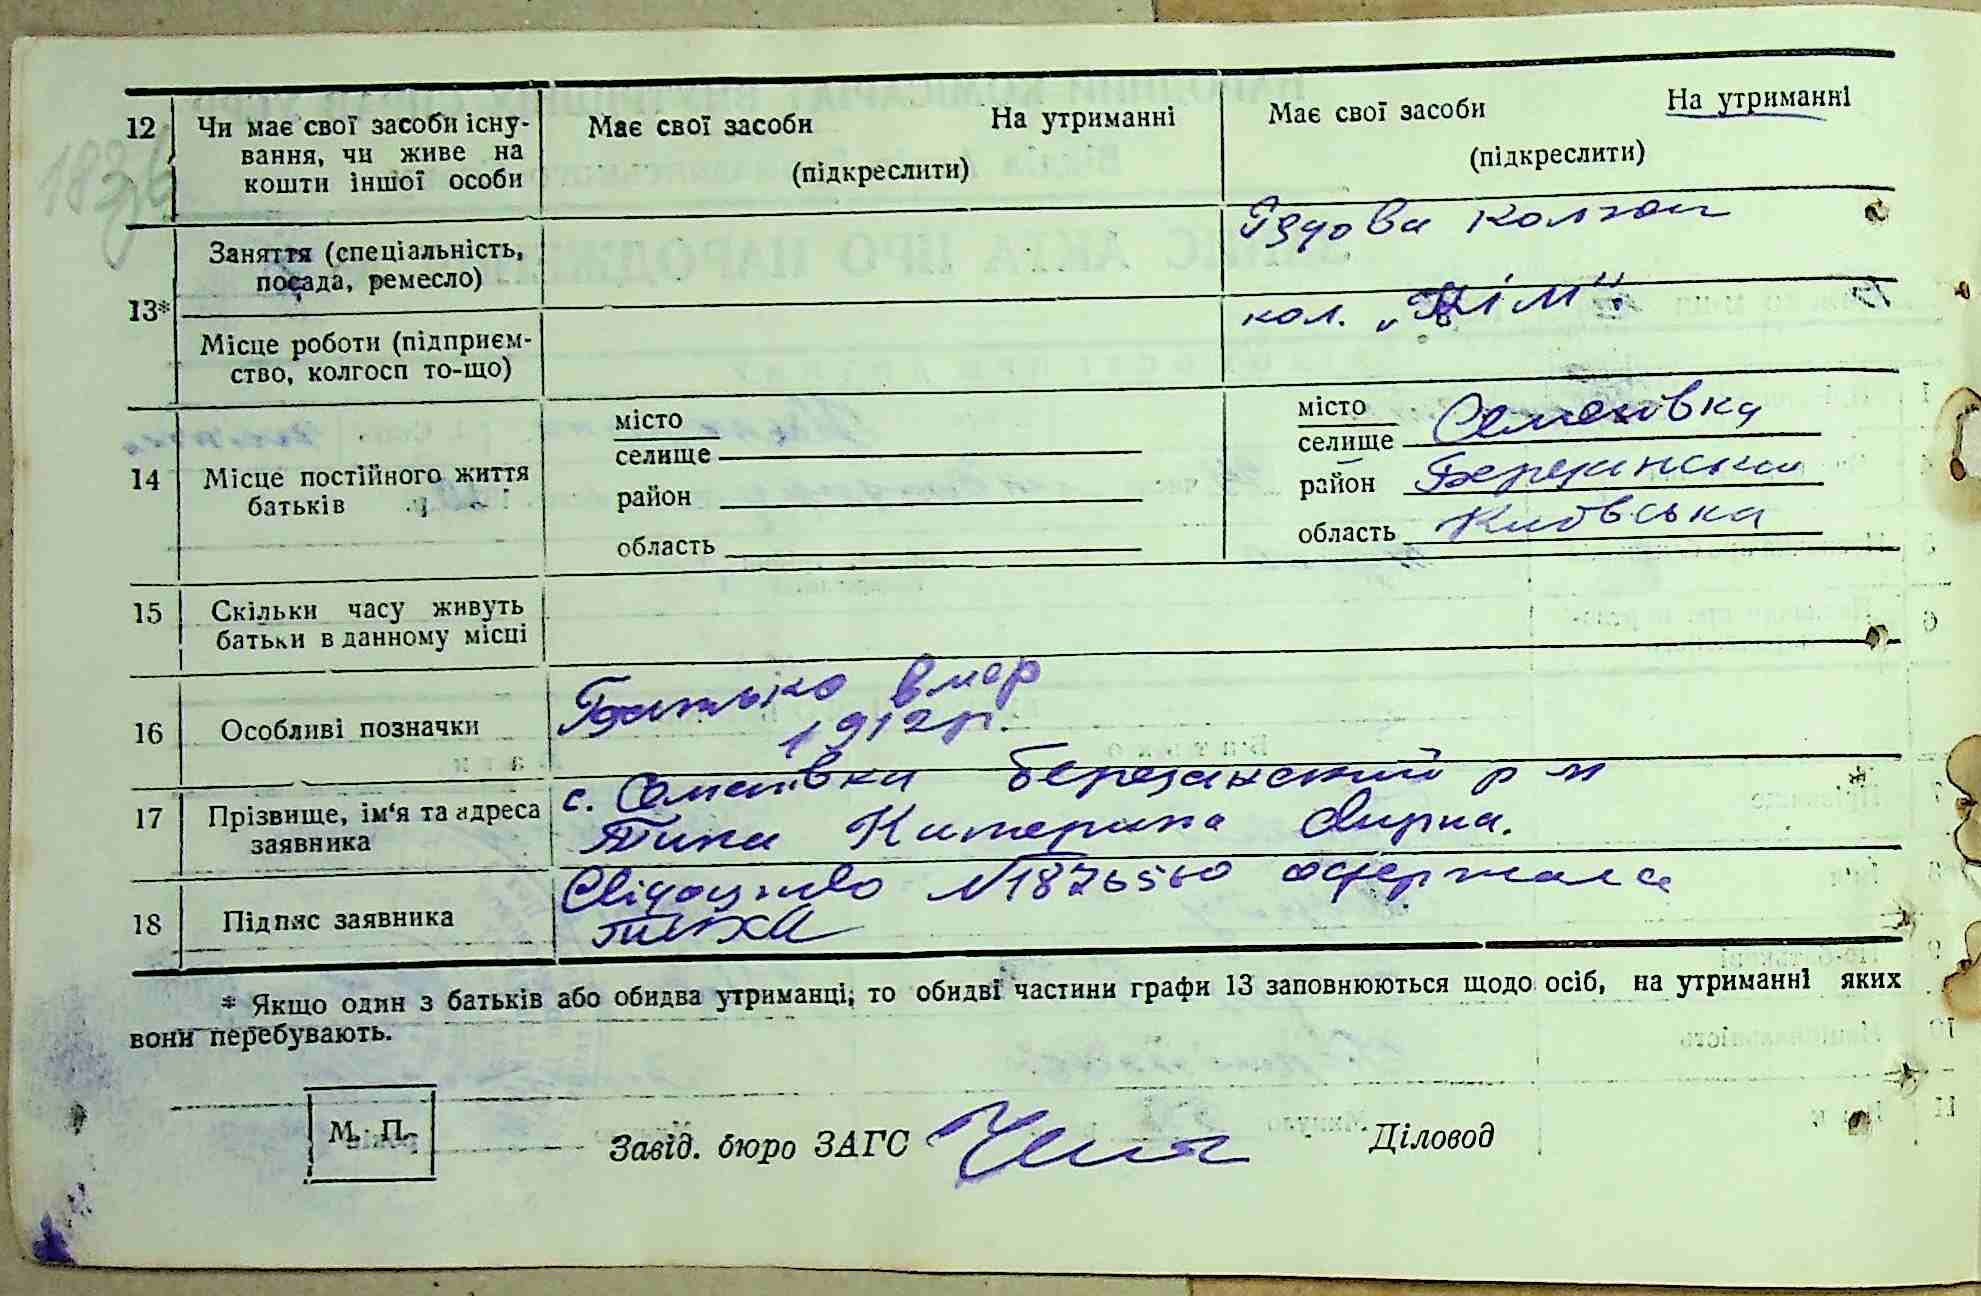 12
Чи має свої засоби існу-
вання, чи живе на
кошти іншої особи
Має свої засоби На утриманні
(підкреслити)
Має свої засоби На утриманні
(підкреслити)
13*
Заняття (спеціальність,
посада, ремесло)
Рядова колгосп
Місце роботи (підприєм-
ство, колгосп то-що)
кол. „Кім“
14
Місце постійного життя
батьків
місто
селище
район
область
місто
селище Семенівка
район Березанський
область Київська
15
Скільки часу живуть
батьки в данному місці
16
Особливі позначки
Батько вмер
1912р.
17
Прізвище, ім'я та адреса
заявника
с. Семенівка березанский р н
Катерина
18
Підпис заявника
Свідоцтво N1876560 одержала
* Якщо один з батьків або обидва утриманці; то обидві частини графи 13 заповнюються щодо осіб, на утриманні яких
вони перебувають.
М. П.
Завід. бюро ЗАГС
Діловод